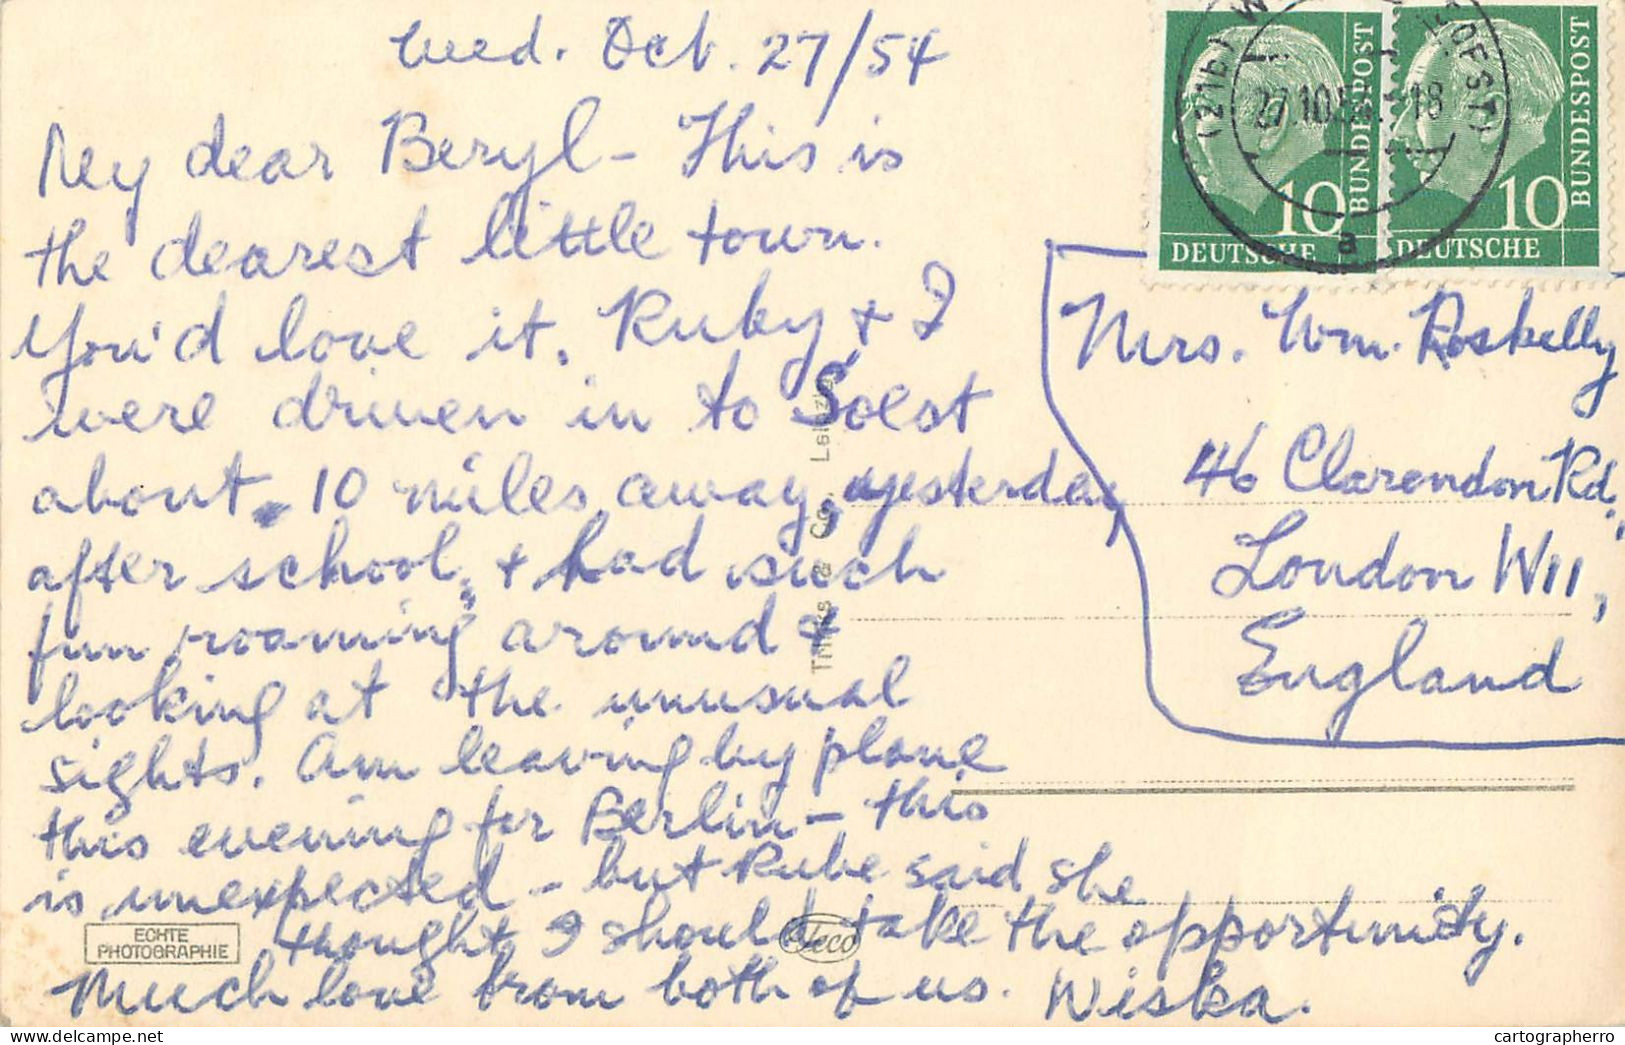 Wed. Oct. 27/54
My dear Beryl - This is
the dearest little town.
You'd love it. Ruby & I
were driven in to Soest
about 10 miles away, yesterday
after school, & had such
fun roaming around &
looking at the unusual
sights. Am leaving by plane
this evening for Berlin - this
is unexpected - but Rube said she
thought I should take the opportunity.
Much love from both of us. Wiska.
Mrs. Wm. Roskelly
46 Clarendon Rd.,
London W11,
England
(21b)
27.10.54. 18
a
10
DEUTSCHE
BUNDESPOST
10
DEUTSCHE
BUNDESPOST
Trinks & Co. Leipzig
ECHTE
PHOTOGRAPHIE
Teco
cartographerro